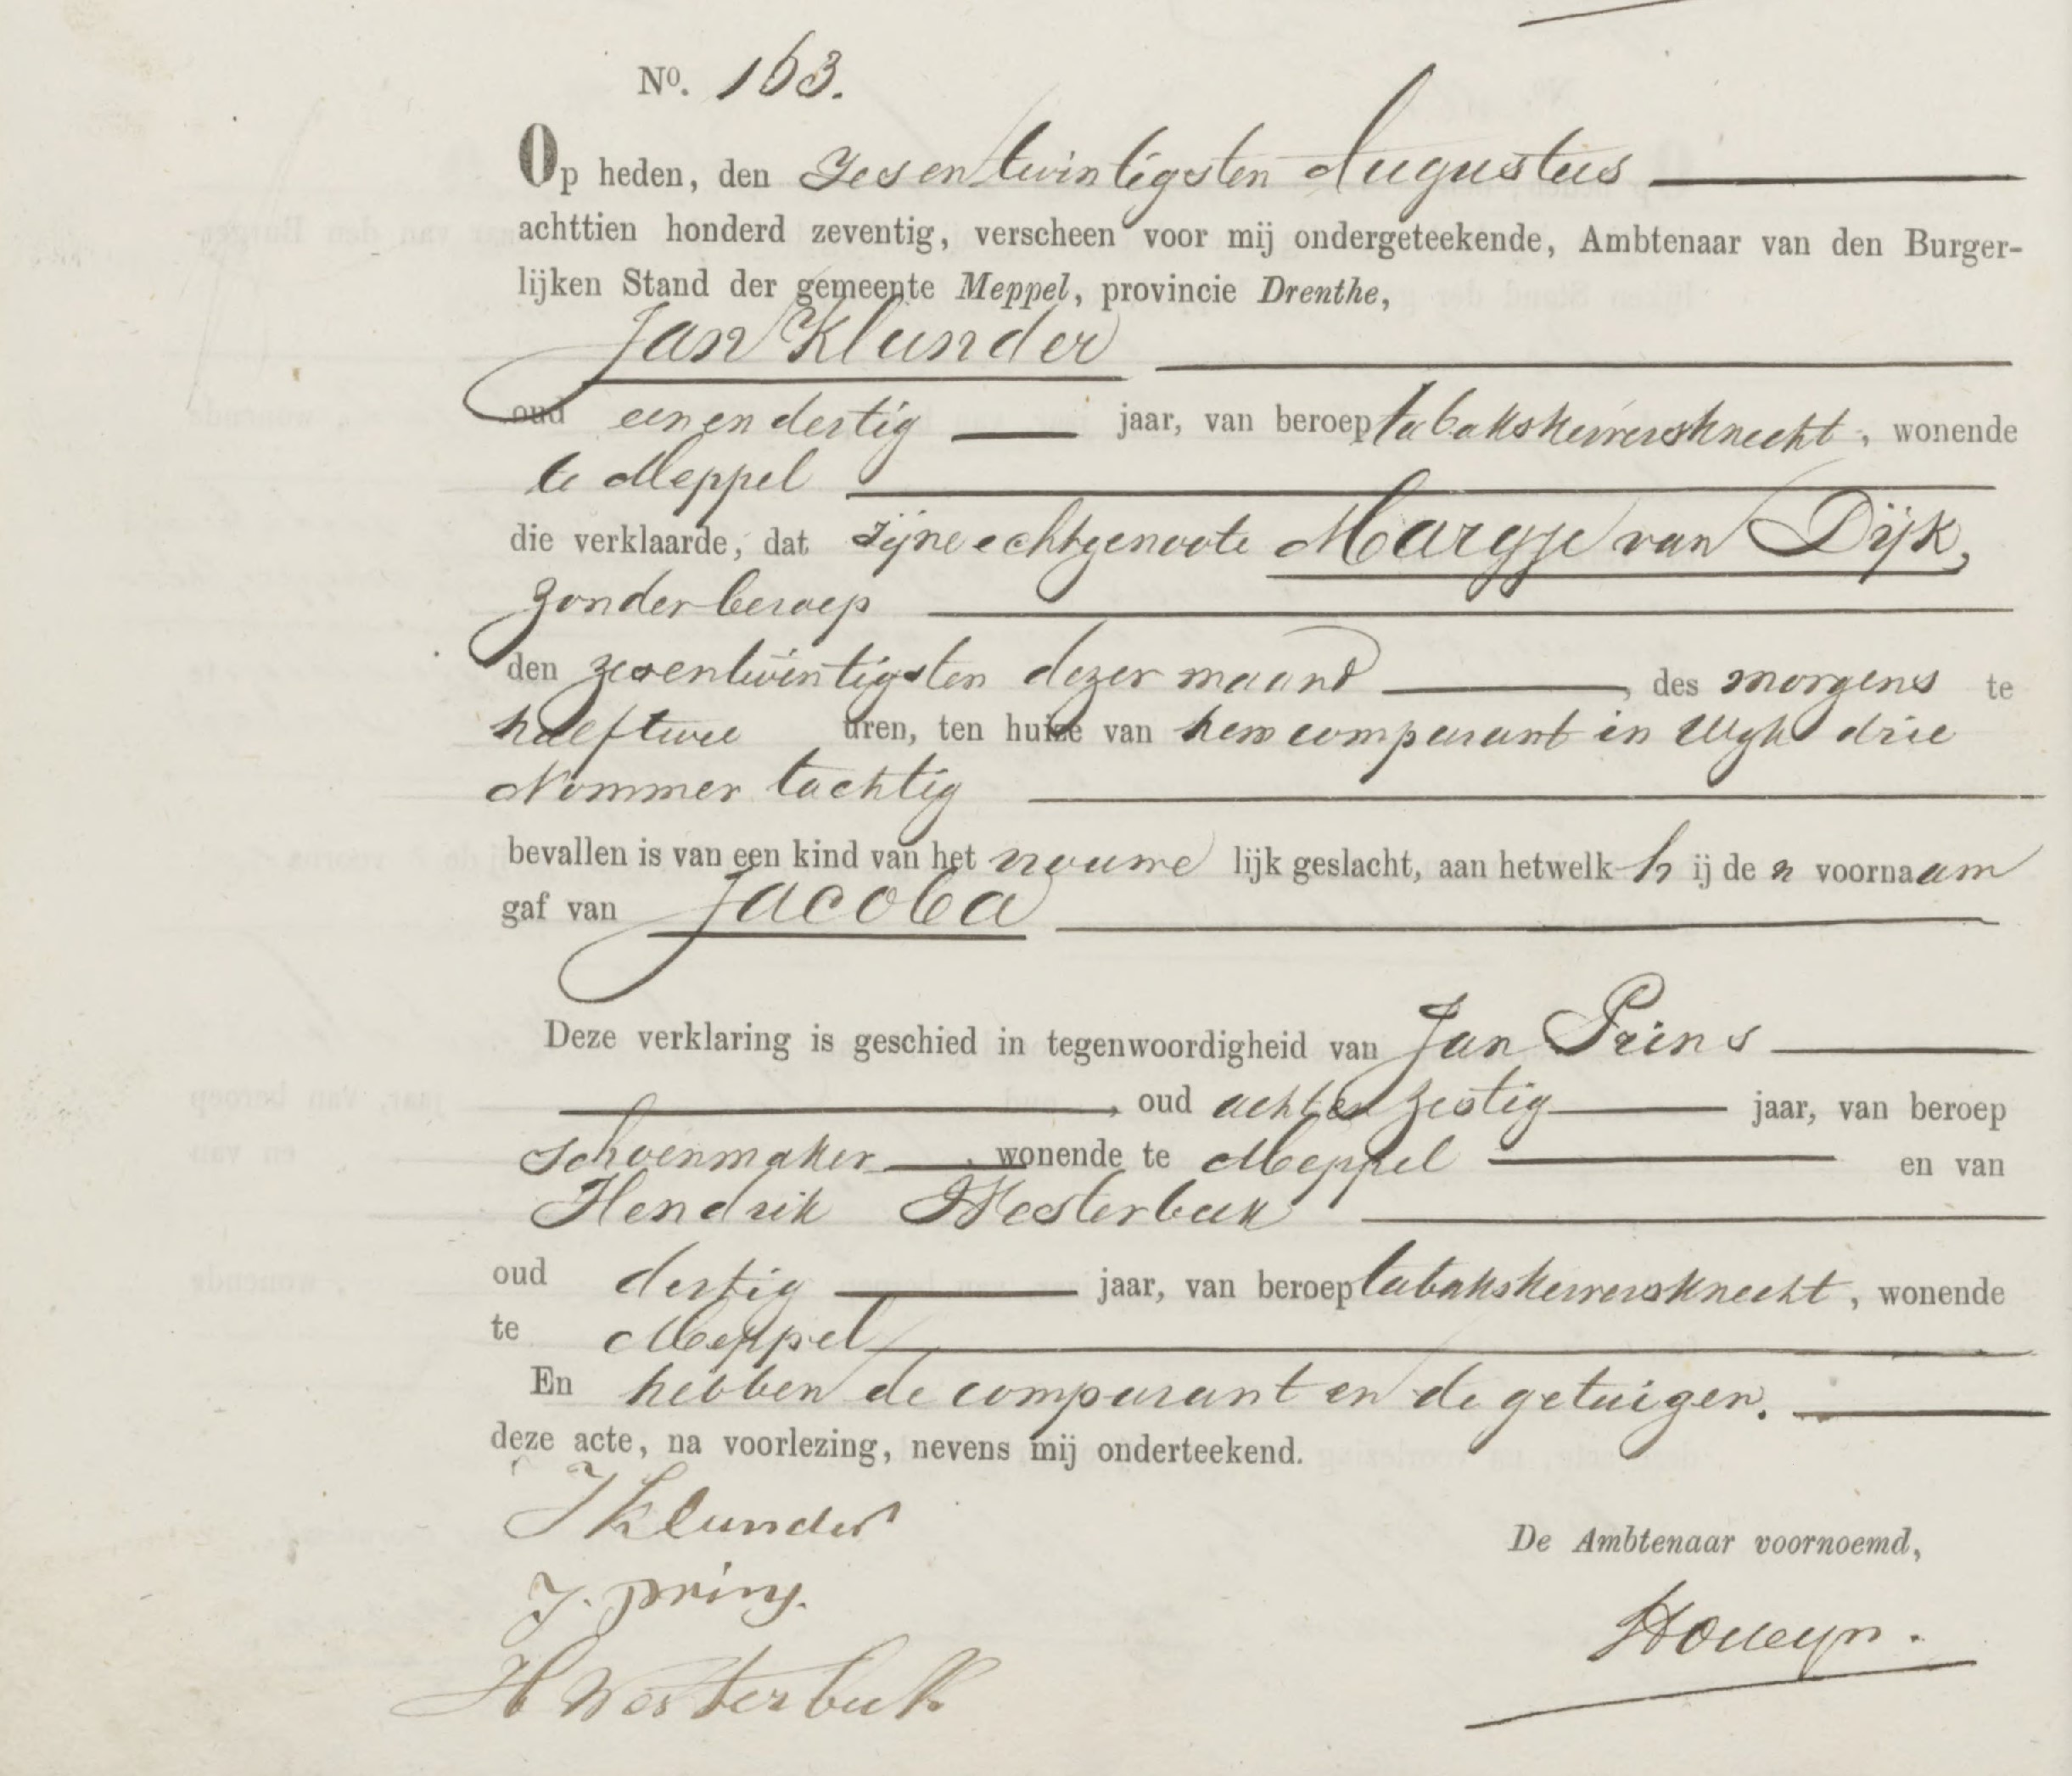 Nº. 163.
Op heden, den Zesentwintigsten Augustus
achttien honderd zeventig, verscheen voor mij ondergeteekende, Ambtenaar van den Burger-
lijken Stand der gemeente Meppel, provincie Drenthe,
Jan Klunder
oud eenendertig jaar, van beroep tabakskerversknecht, wonende
te Meppel
die verklaarde, dat zijne echtgenoote Margje van Dijk,
Zonder beroep
den zesentwintigsten dezer maand, des morgens te
half twee uren, ten huize van hem comparant in Wyk drie
Nommer tachtig
bevallen is van een kind van het vrouwelijk geslacht, aan hetwelk hij den voornaam
gaf van Jacoba
Deze verklaring is geschied in tegenwoordigheid van Jan Prins
, oud achtenzestig jaar, van beroep
schoenmaker, wonende te Meppel en van
Hendrik Westerbeek
oud dertig jaar, van beroep tabakskerversknecht, wonende
te Meppel
En hebben de comparant en de getuigen.
deze acte, na voorlezing, nevens mij onderteekend.
J Klunder
De Ambtenaar voornoemd,
J. prins.
H Westerbeek